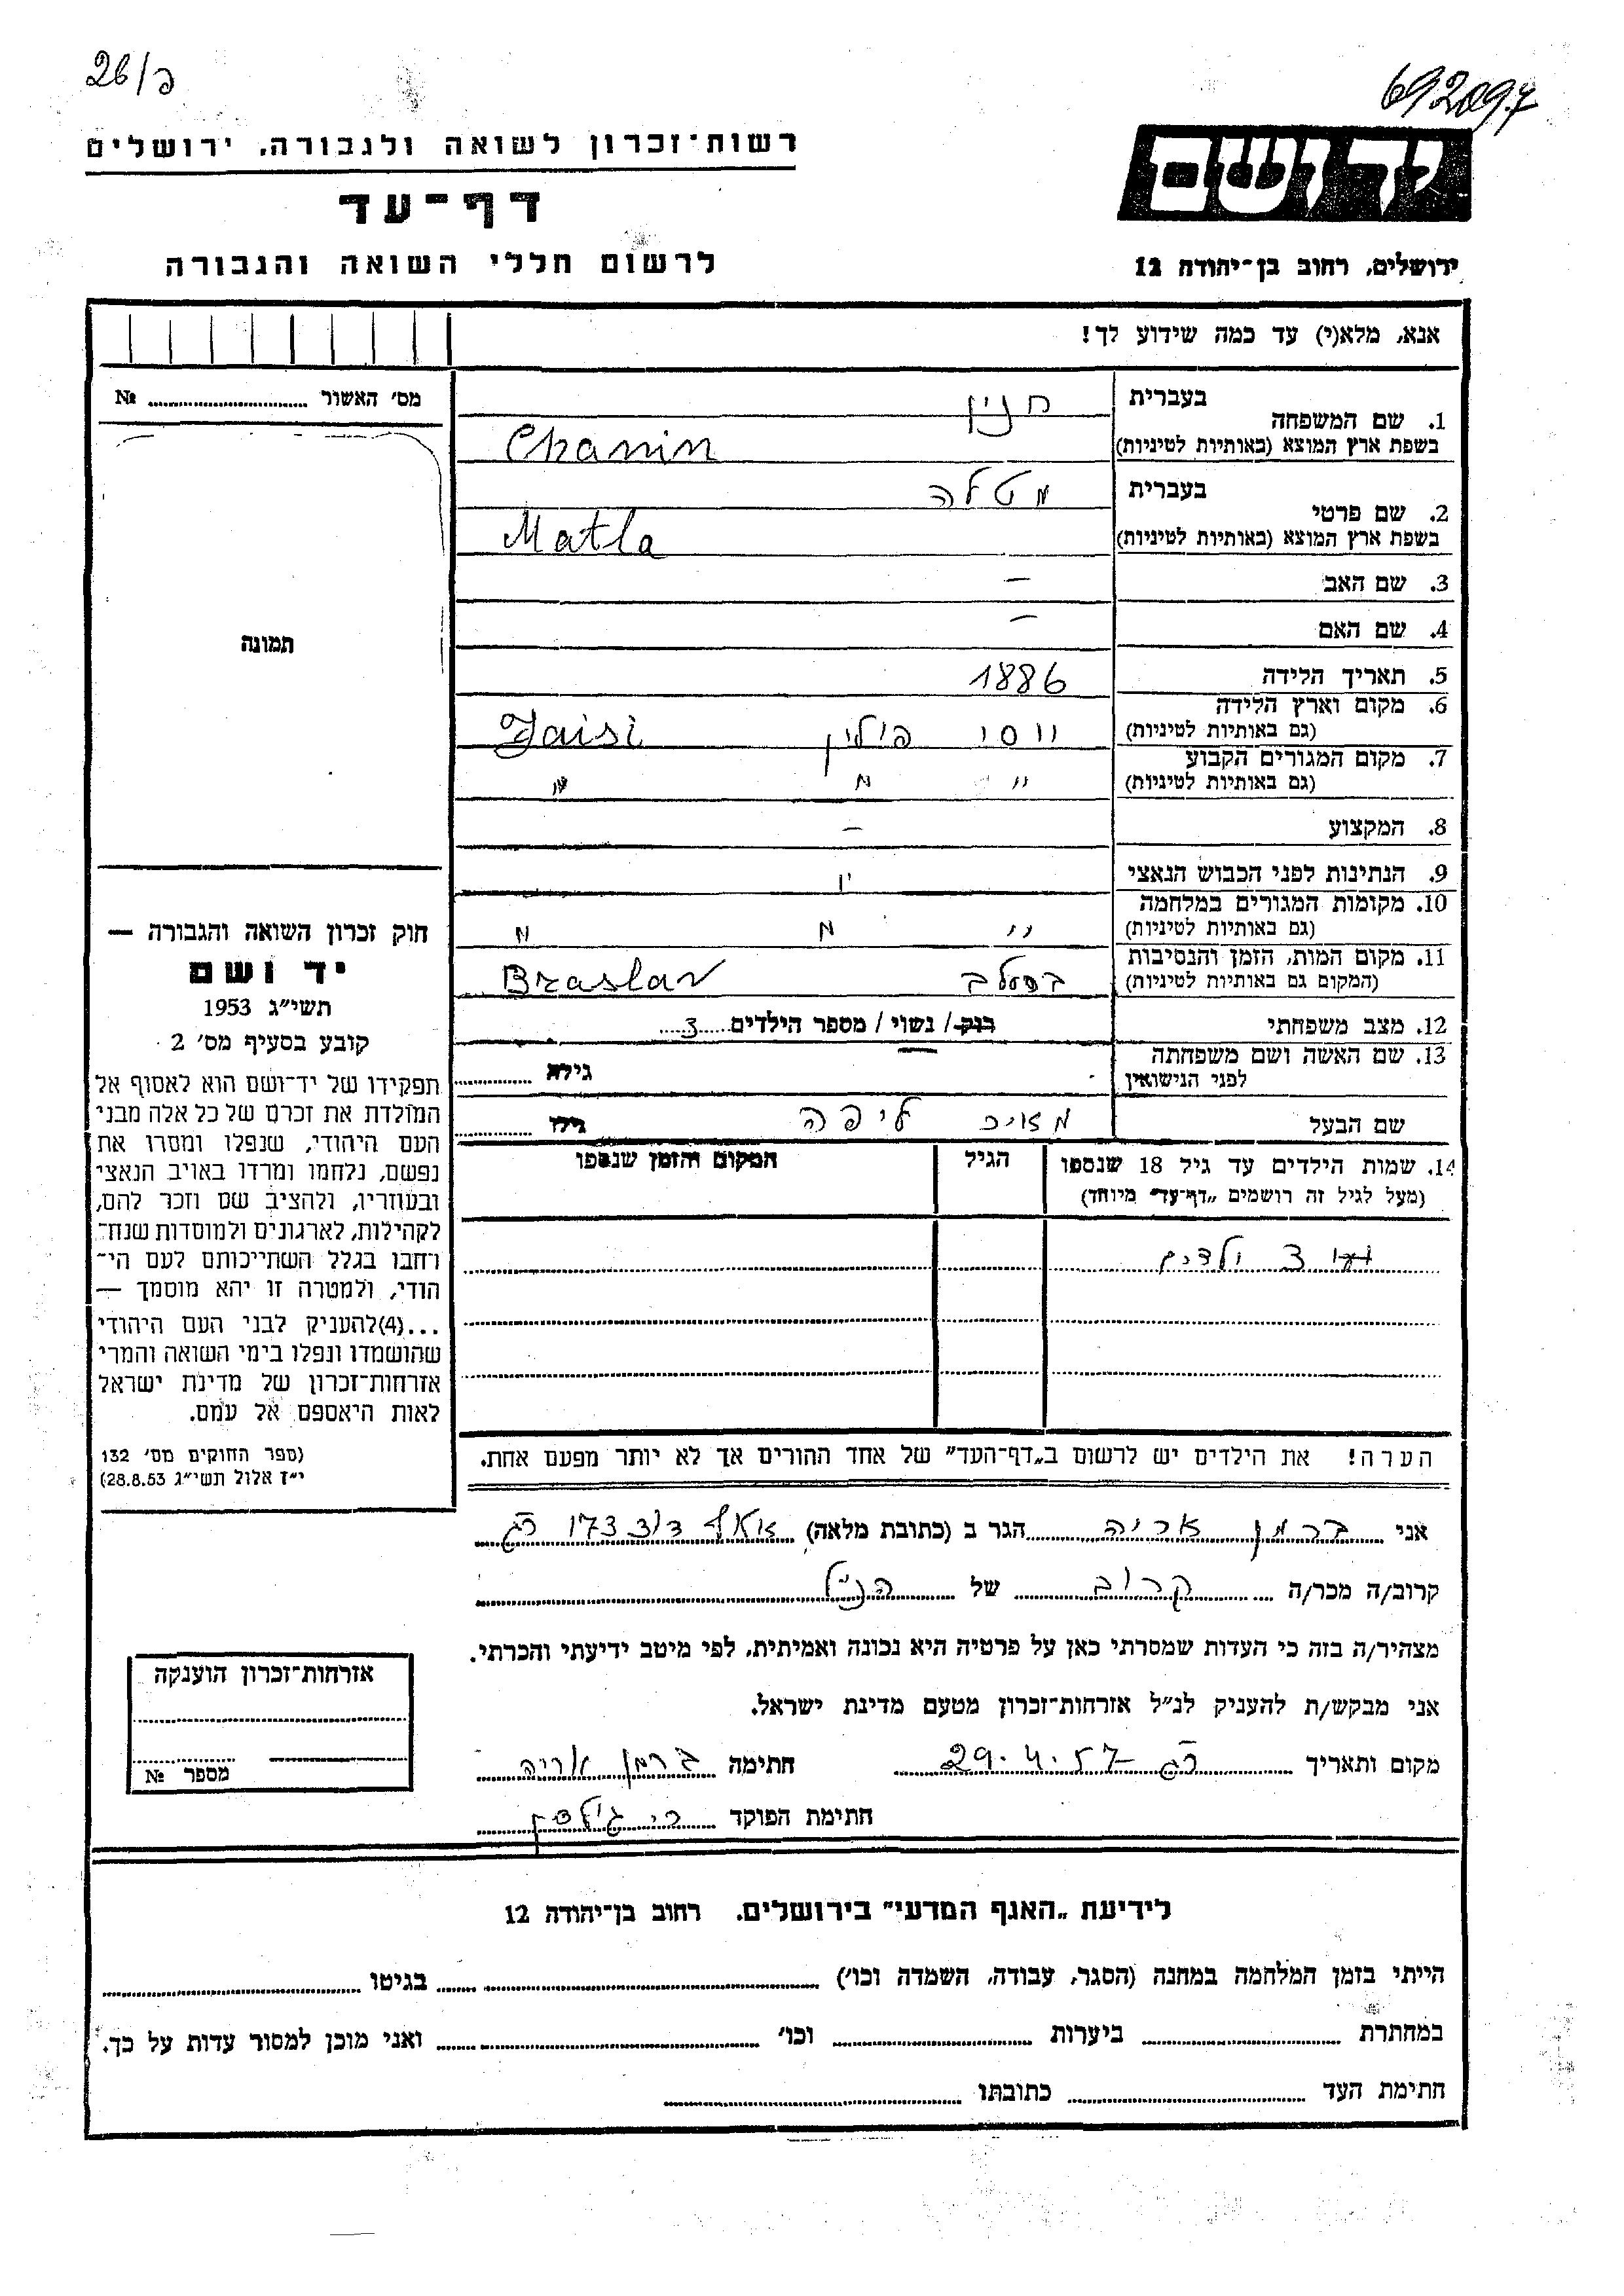 26/כ
692097
רשות־זכרון לשואה ולגבורה, ירושלים
דף־עד
לרשום חללי השואה והגבורה
יד ושם
ירושלים, רחוב בן־יהודה 12
אנא, מלא(י) עד כמה שידוע לך!
מס׳ האשור № 
1. שם המשפחה
בעברית חנין
בשפת ארץ המוצא (באותיות לטיניות) Chanin
2. שם פרטי
בעברית מטלה
בשפת ארץ המוצא (באותיות לטיניות) Matla
3. שם האב –
4. שם האם –
5. תאריך הלידה 1886
6. מקום וארץ הלידה
(גם באותיות לטיניות) ווסי פולין Jaisi
7. מקום המגורים הקבוע
(גם באותיות לטיניות) " " "
8. המקצוע –
9. הנתינות לפני הכבוש הנאצי
10. מקומות המגורים במלחמה
(גם באותיות לטיניות) " " "
11. מקום המות, הזמן והנסיבות
(המקום גם באותיות לטיניות) ברסלב Braslav
12. מצב משפחתי רוק / נשוי / מספר הילדים 3
13. שם האשה ושם משפחתה
לפני הנישואין – גילה
שם הבעל ליפה גילו
14. שמות הילדים עד גיל 18 שנספו
(מעל לגיל זה רושמים „דף־עד״ מיוחד)
הגיל
המקום והזמן שנספו
3 ילדים
הערה! את הילדים יש לרשום ב„דף־העד״ של אחד ההורים אך לא יותר מפעם אחת.
תמונה
חוק זכרון השואה והגבורה —
יד ושם
תשי״ג 1953
קובע בסעיף מס׳ 2
תפקידו של יד־ושם הוא לאסוף אל
המולדת את זכרם של כל אלה מבני
העם היהודי, שנפלו ומסרו את
נפשם, נלחמו ומרדו באויב הנאצי
ובעוזריו, ולהציב שם וזכר להם,
לקהילות, לארגונים ולמוסדות שנח־
רבו בגלל השתייכותם לעם הי־
הודי, ולמטרה זו יהא מוסמך —
...(4)להעניק לבני העם היהודי
שהושמדו ונפלו בימי השואה והמרי
אזרחות־זכרון של מדינת ישראל
לאות היאספם אל עמם.
(ספר החוקים מס׳ 132
י״ז אלול תשי״ג 28.8.53)
אני ברמן אריה הגר ב (כתובת מלאה) 173 רג
קרוב/ה מכר/ה קרוב של הנ״ל
מצהיר/ה בזה כי העדות שמסרתי כאן על פרטיה היא נכונה ואמיתית, לפי מיטב ידיעתי והכרתי.
אני מבקש/ת להעניק לנ״ל אזרחות־זכרון מטעם מדינת ישראל.
מקום ותאריך רג 29.4.57 חתימה ברמן אריה
חתימת הפוקד
אזרחות־זכרון הוענקה
מספר №
לידיעת „האגף המדעי״ בירושלים, רחוב בן־יהודה 12
הייתי בזמן המלחמה במחנה (הסגר, עבודה, השמדה וכו׳) בגיטו
במחתרת ביערות וכו׳ ואני מוכן למסור עדות על כך.
חתימת העד כתובתו